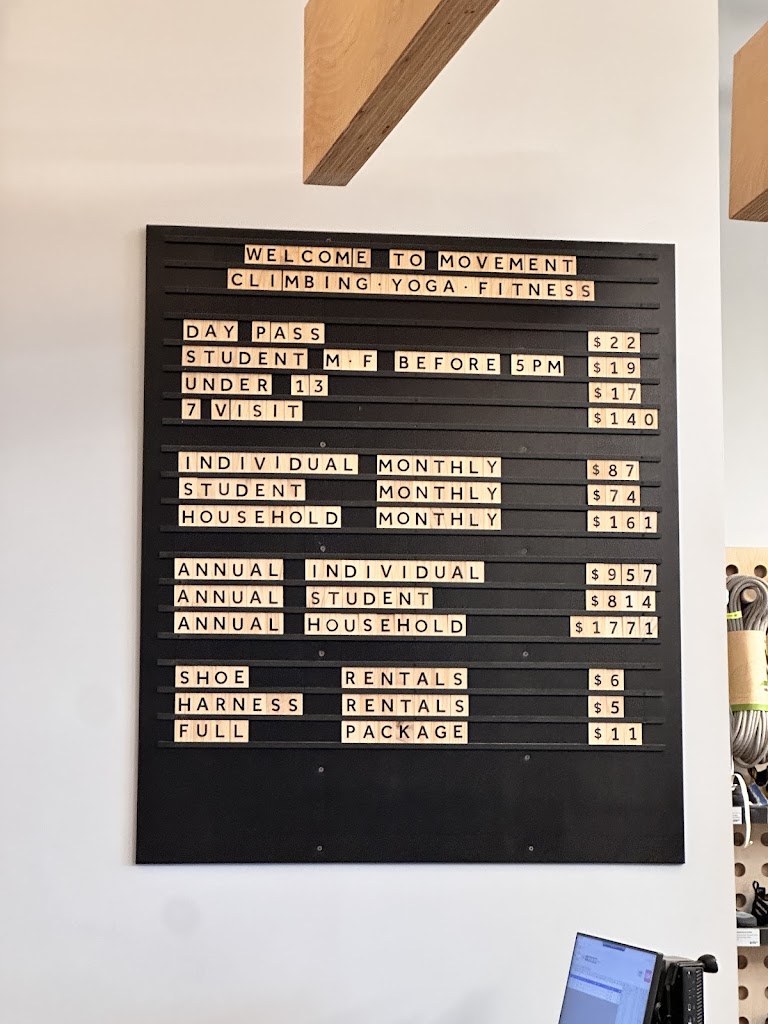 WELCOME TO MOVEMENT
CLIMBING·YOGA·FITNESS
DAY PASS $22
STUDENT M·F BEFORE 5PM $19
UNDER 13 $17
7 VISIT $140
INDIVIDUAL MONTHLY $87
STUDENT MONTHLY $74
HOUSEHOLD MONTHLY $161
ANNUAL INDIVIDUAL $957
ANNUAL STUDENT $814
ANNUAL HOUSEHOLD $1771
SHOE RENTALS $6
HARNESS RENTALS $5
FULL PACKAGE $11